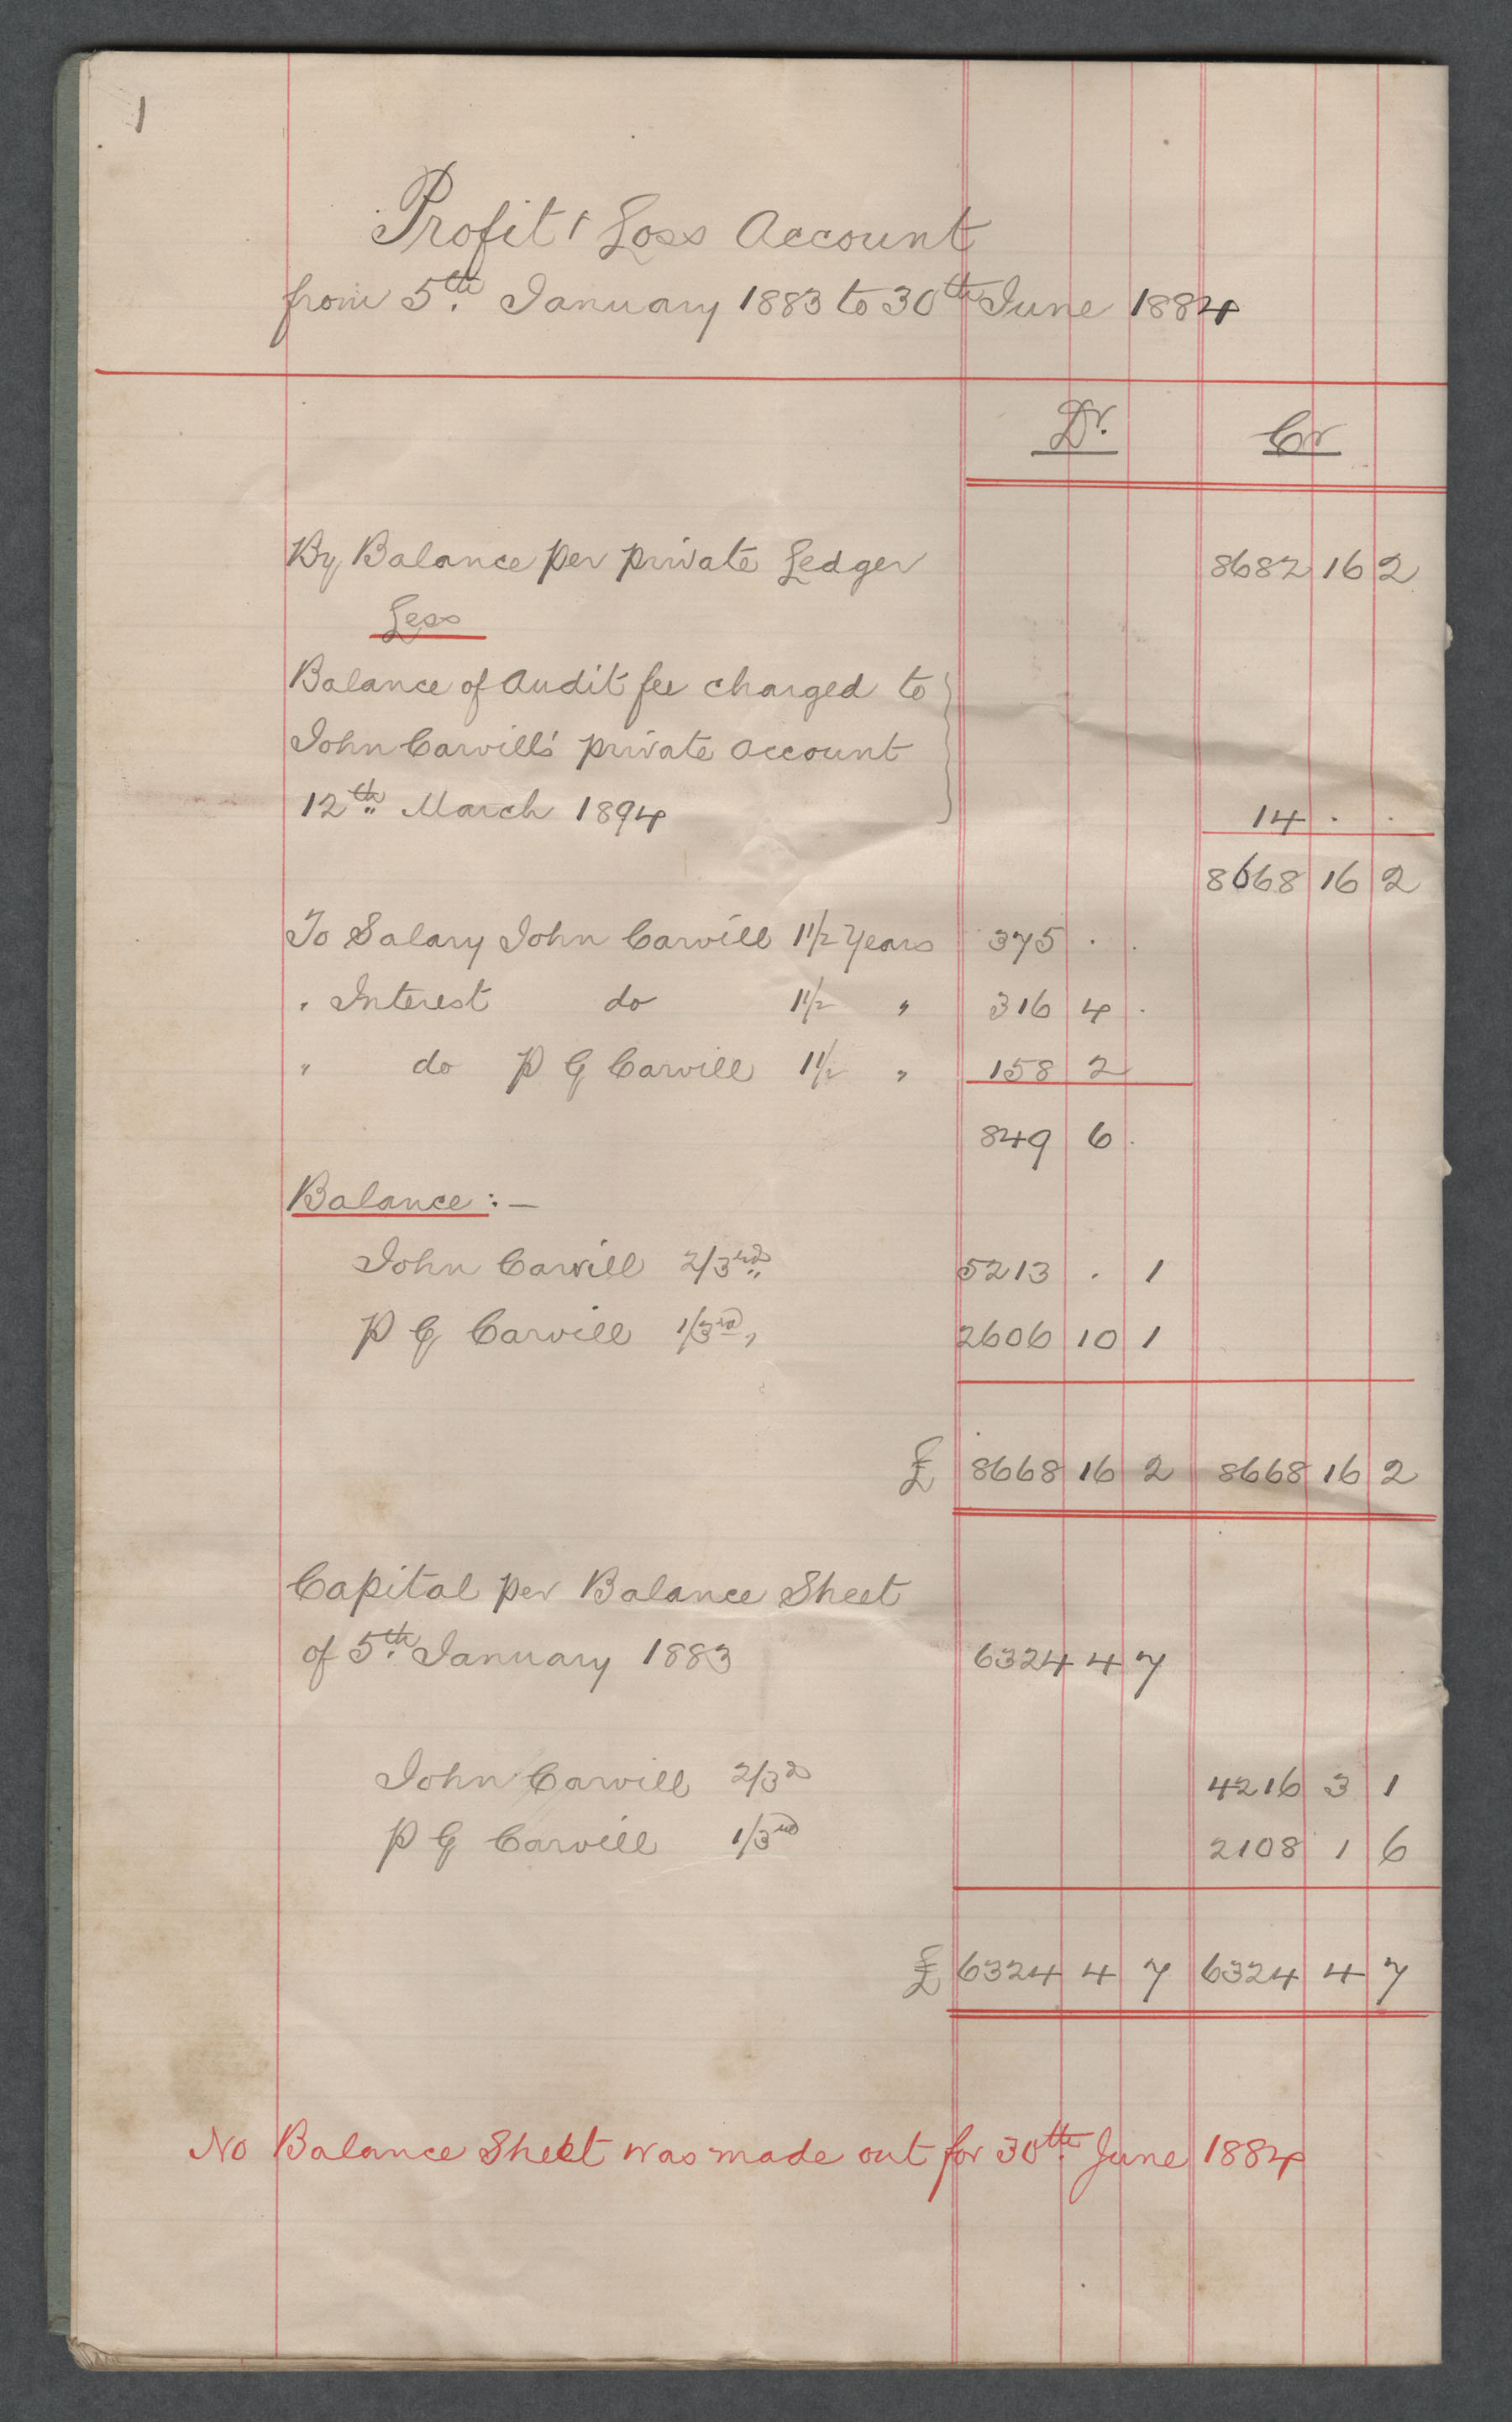 1
Profit & Loss Account
from 5th January 1883 to 30th June 1884
Dr. Cr
By Balance per private Ledger 8682 16 2
Less
Balance of Audit fee charged to
John Carvill's private account
12th March 1894 14 . .
8668 16 2
To Salary John Carvill 1 1/2 Years 375 . .
" Interest do 1 1/2 " 316 4 .
" do P G Carvill 1 1/2 " 158 2
849 6 .
Balance :—
John Carvill 2/3rds 5213 . 1
P G Carvill 1/3rd " 2606 10 1
£ 8668 16 2 8668 16 2
Capital per Balance Sheet
of 5th January 1883 6324 4 7
John Carvill 2/3ds 4216 3 1
P G Carvill 1/3rd 2108 1 6
£ 6324 4 7 6324 4 7
No Balance Sheet was made out for 30th June 1884